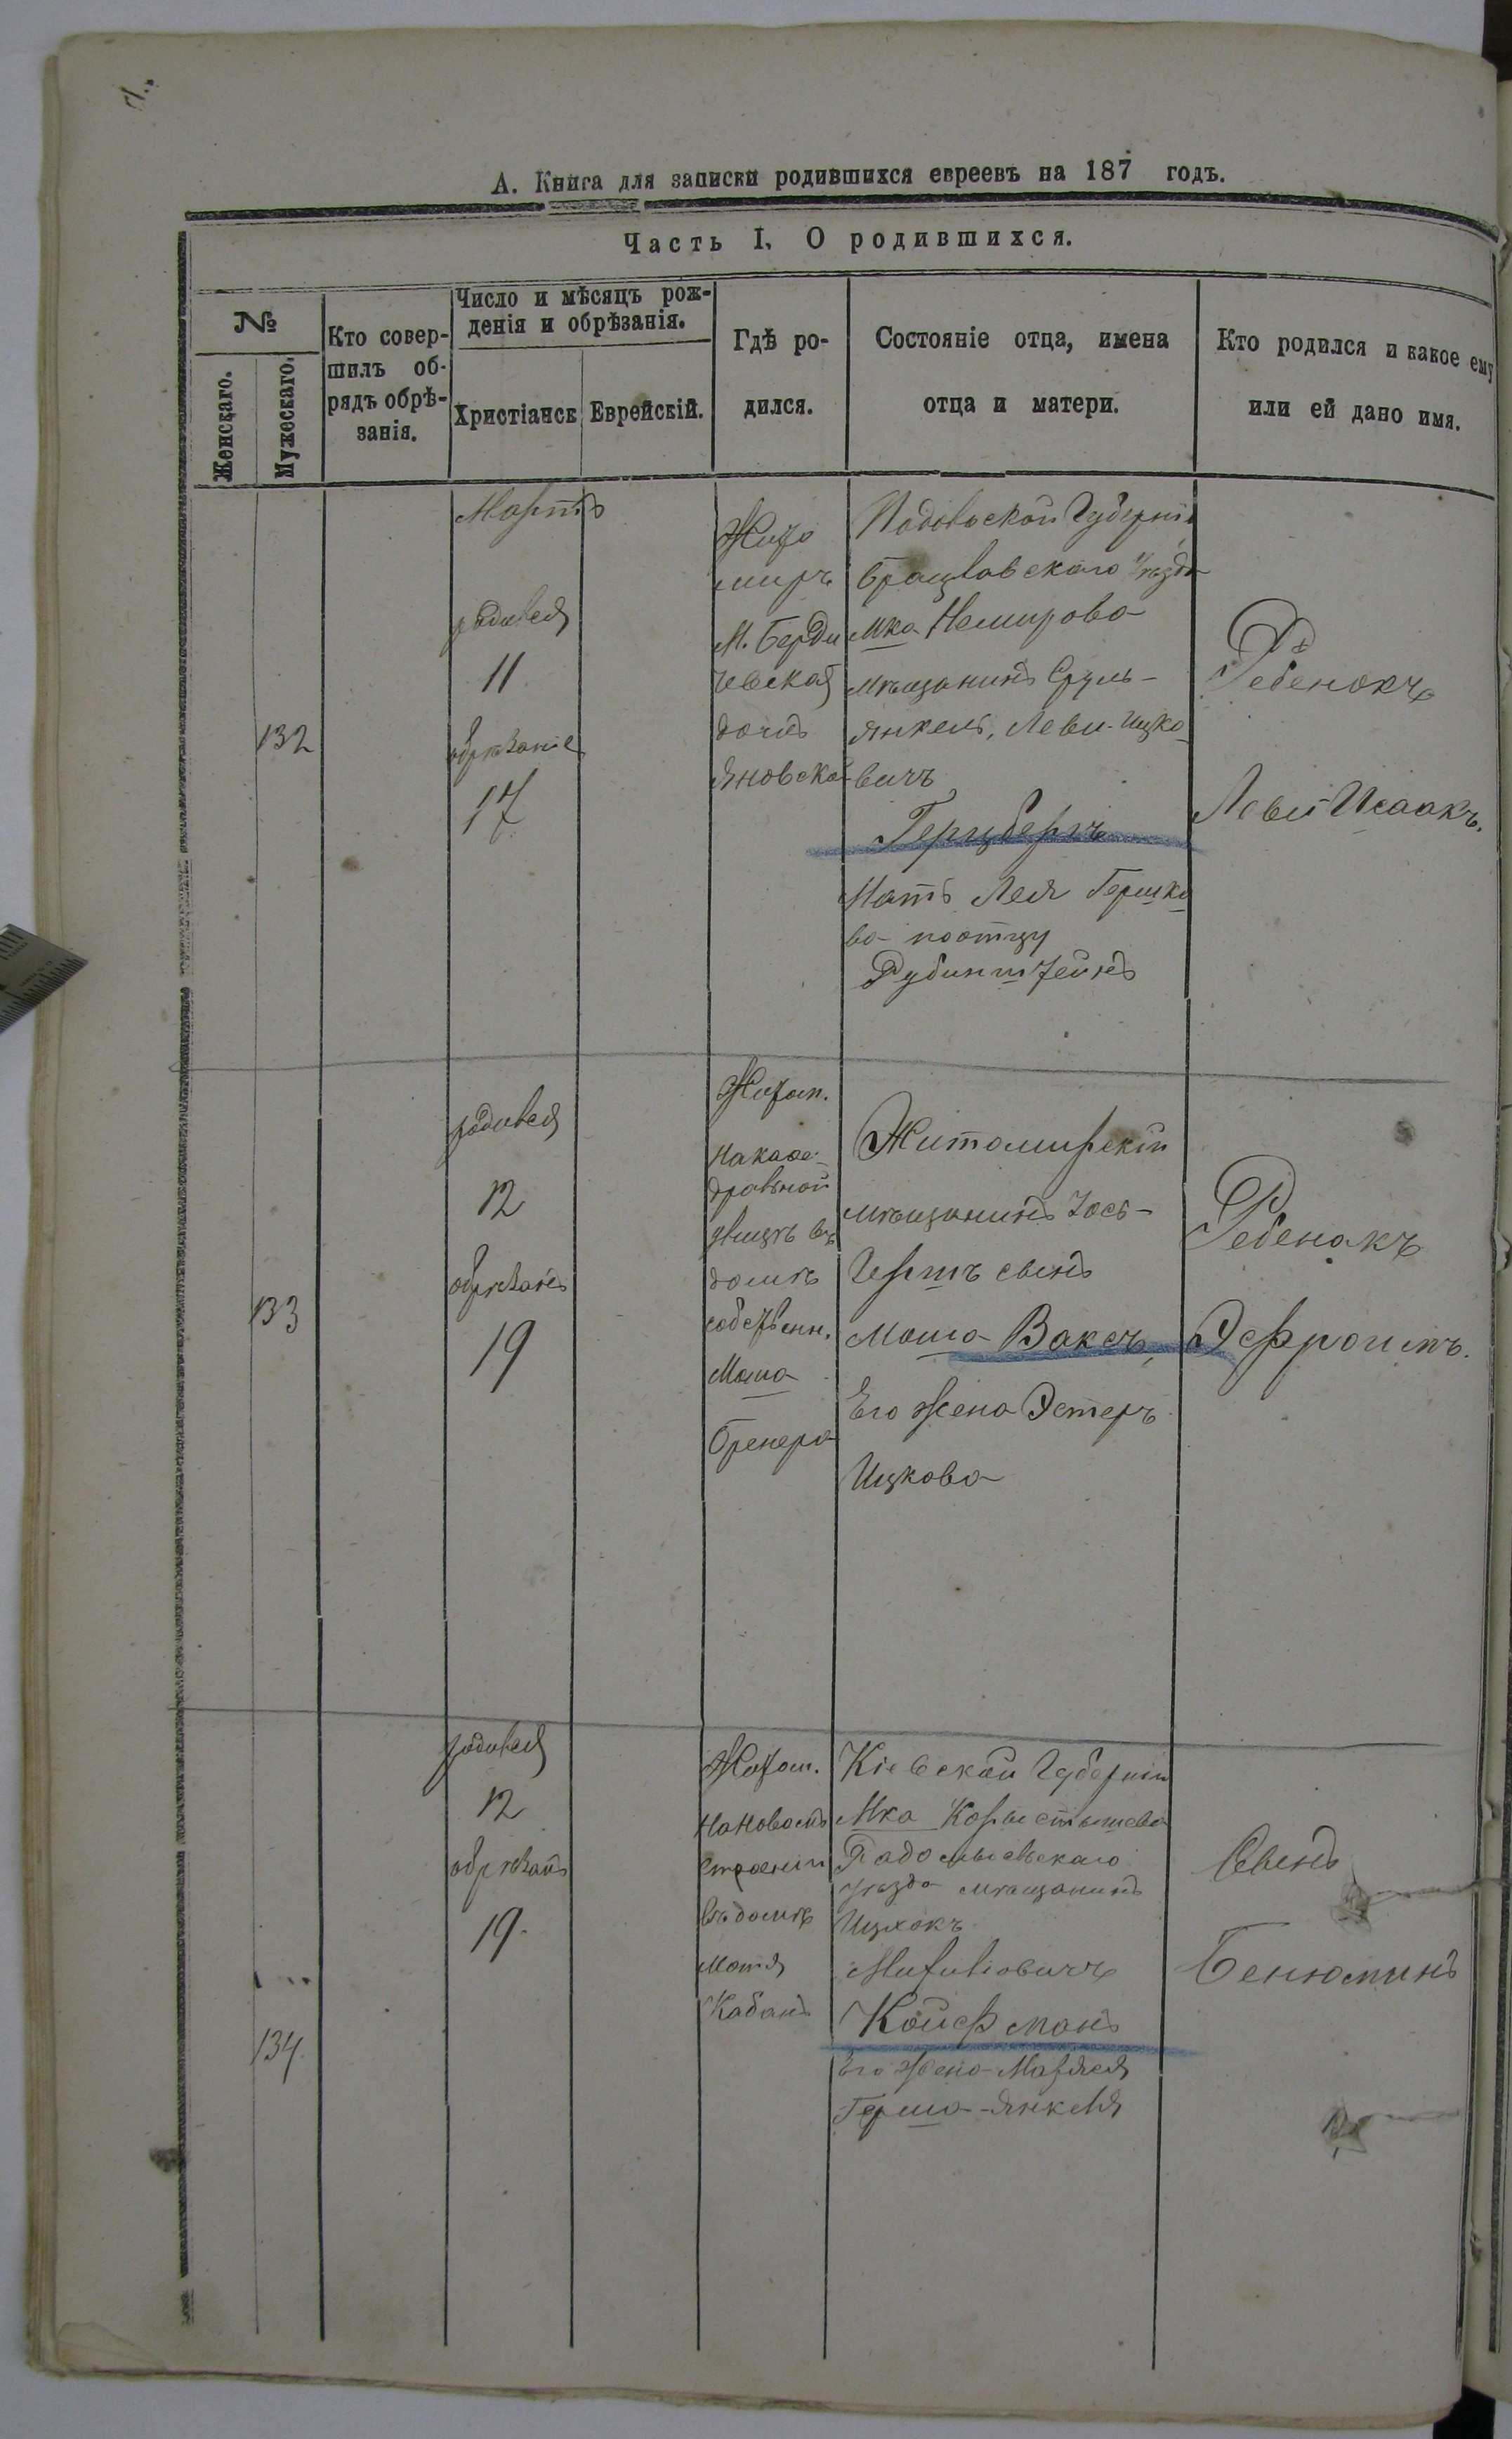 А. Книга для записки родившихся евреевъ на 187 годъ.
Часть I. О родившихся.
№
Женскаго.
Мужескаго.
Кто совер-
шилъ об-
рядъ обрѣ-
занія.
Число и мѣсяцъ рож-
денія и обрѣзанія.
Христіанск
Еврейскій.
Гдѣ ро-
дился.
Состояніе отца, имена
отца и матери.
Кто родился и какое ему
или ей дано имя.
132
Мартъ
родился
11
обрезаніе
17
Жито
миръ
М. Берди
чевская
домъ
Яновска
Подольской Губерніи
Брацлавскаго Уѣзда
Мка Немирова
мѣщанинъ Сруль-
Янкель, Леви-Ицко
вичъ
Герцбергъ
Мать Лея Гершко
ва по отцу
Рубинштейнъ
Ребенокъ
Левы Исаакъ.
133
родился
12
обрезаніе
19
Житом.
на каѳе-
дральной
улицѣ въ
домѣ
собствен.
Моша
Бренера
Житомирскій
мѣщанинъ Іось-
Гершъ сынъ
Моша Ваксъ,
Его жена Эстеръ
Ицкова
Ребенокъ
Эфроимъ.
134
родился
12
обрезаніе
19.
Житом.
на новомъ
строеніи
въ домѣ
Мотя
Кабанъ
Кіевской Губерніи
Мка Коростышева
Радомысльскаго
Уѣзда мѣщанинъ
Ицхокъ
Койфманъ
Его жена
Герша-Янкеля
Сынъ
Бенюминъ